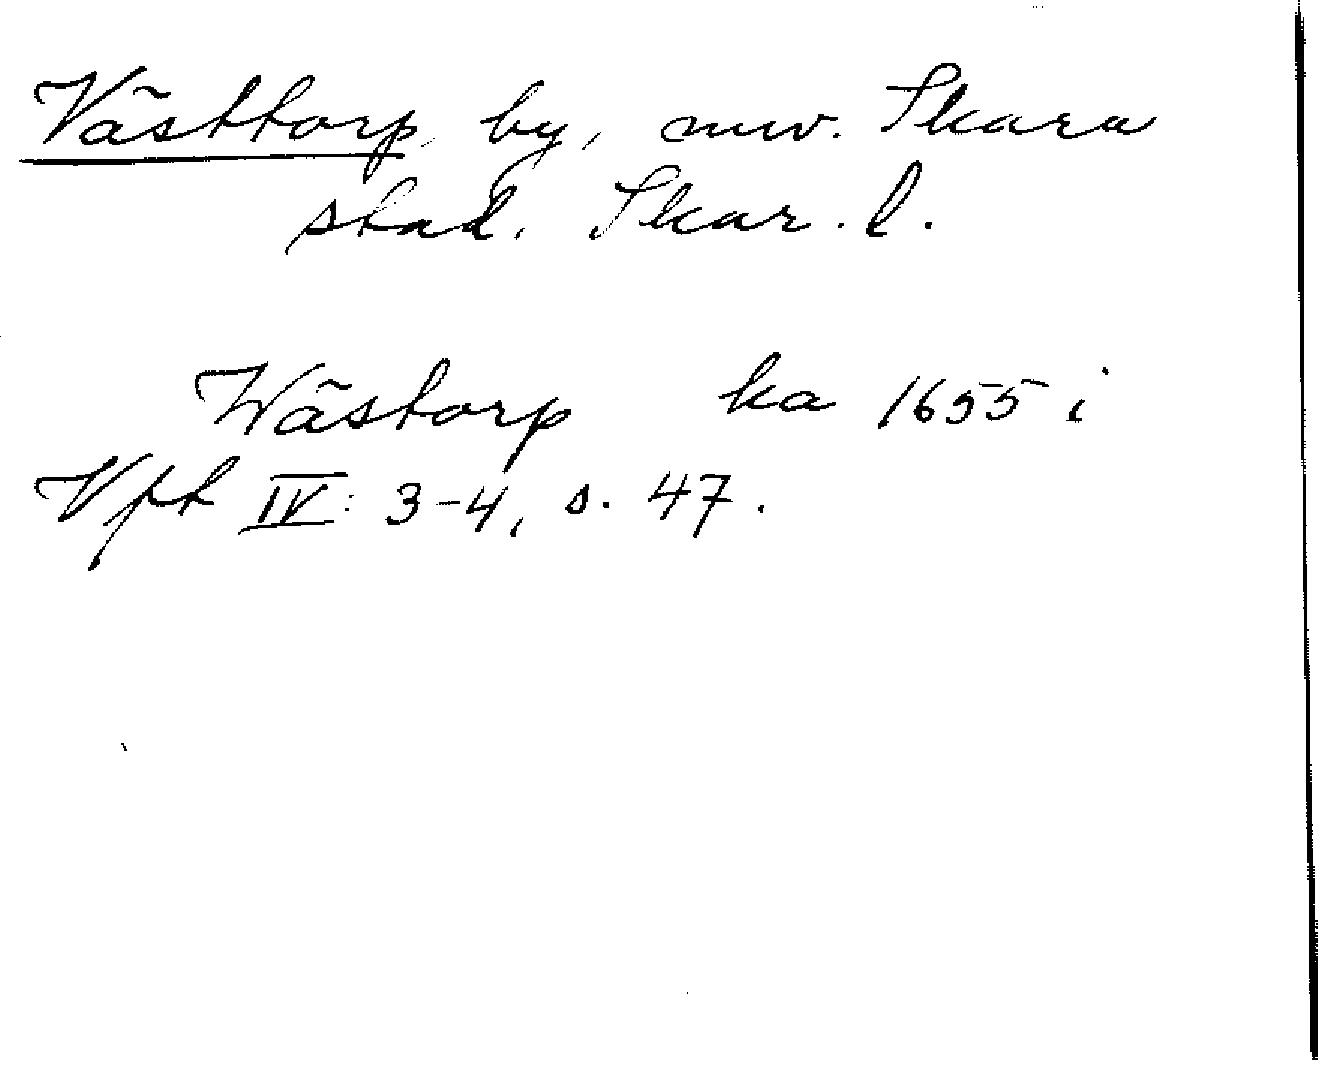 Västtorp, by, nuv. Skara
stad. Skar. l.
Wästorp ka 1655 i
Vft IV: 3-4, s. 47.